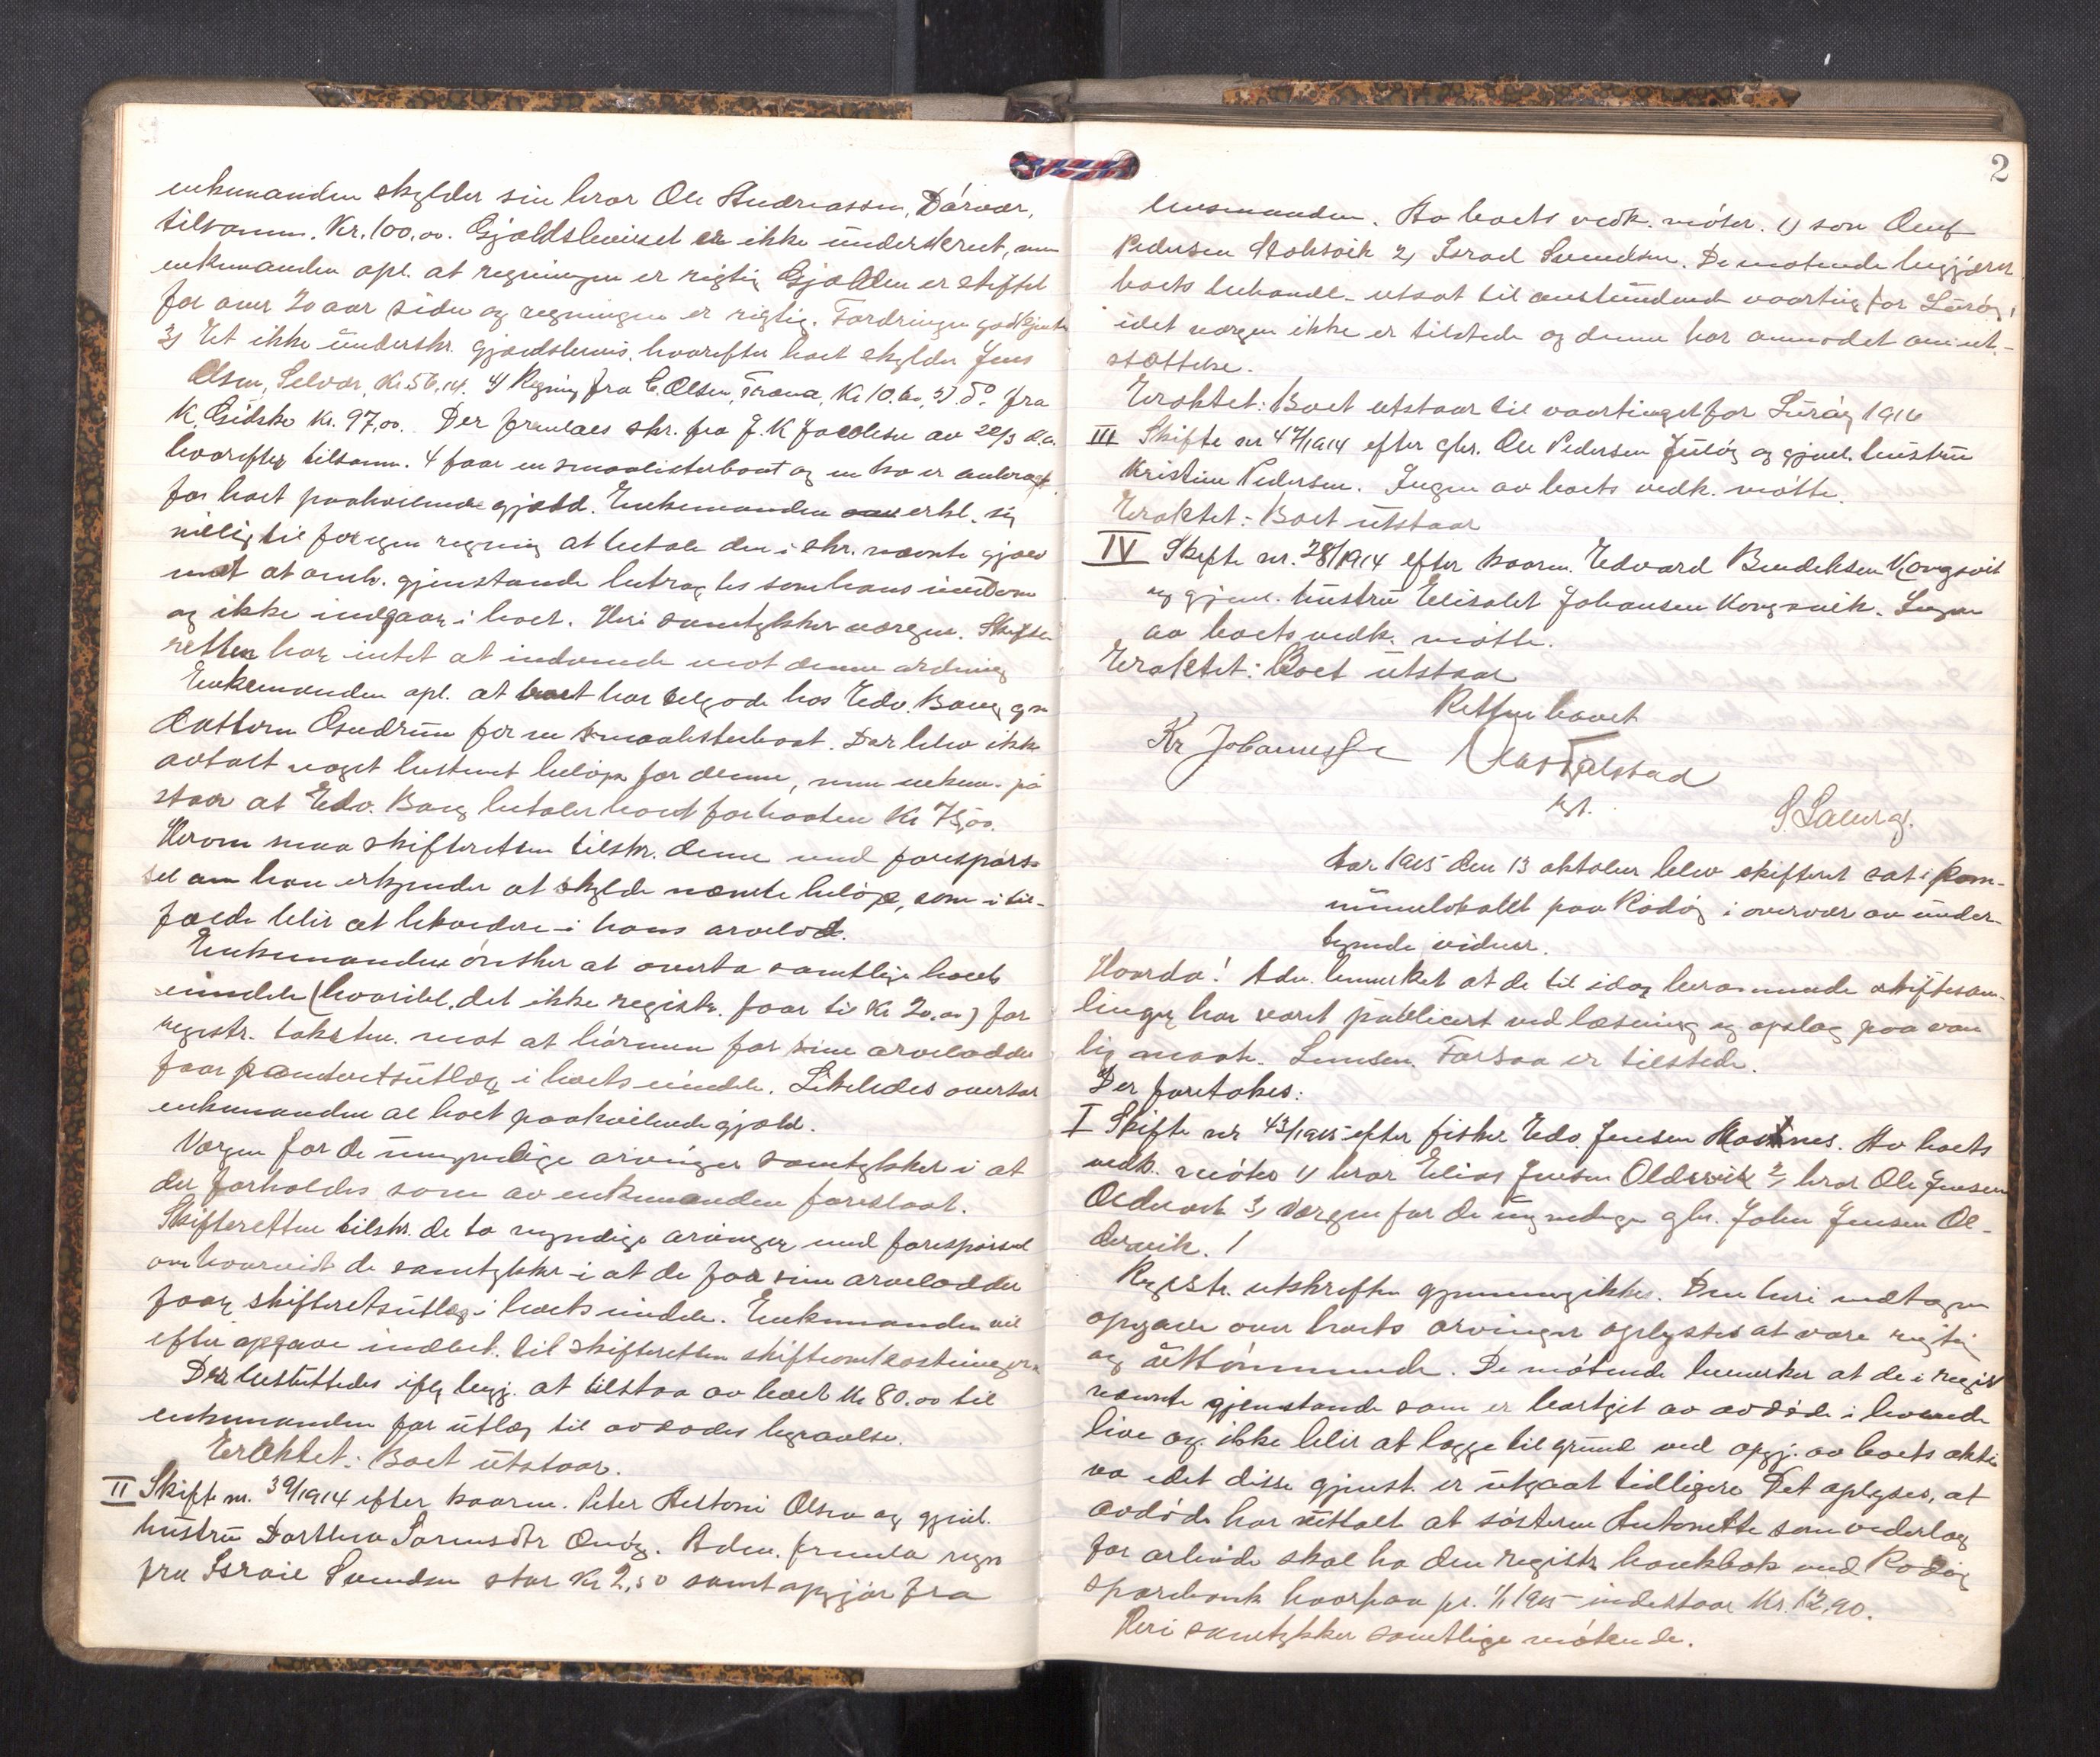 enkemanden skylder sin bror Ole Andreassen, Dörvær,
tilsamm. Kr. 100,00. Gjældsbeviset er ikke underskrevet, men
enkemanden opl. at regningen er rigtig Gjælden er stiftet
for over 20 aar siden og regningen er rigtig. Fordringen godkjentes
3) Et ikke underskr. gjældsbevis, hvorefter boet skylder Jens
Olsen, Selvær, Kr. 56,14. 4) Regning fra C. Olsen, Træna, Kr 10.60, 5) do. fra
K. Gidske Kr. 97,00. Der fremlaes skr. fra J. K Jacobsen av 22/3 d.a.
hvorefter tilsamm. 4 faar en smaalisterbaat og en ko er anbragt
for boet paahvilende gjæld. Enkemanden erkl. sig
villig til for egen regning at betale den i skr. nævnte gjæld
mot at omh. gjenstande betragtes som hans eiendom
og ikke indgaar i boet. Heri samtykker værgen. Skifte-
retten har intet at indvende mot denne ordning
Enkemanden opl. at boet har tilgode hos Edv. Borg gm
datteren Gudrun for en smaalisterbaat. Der blev ikke
avtalt noget bestemt beløp for denne, men enkem. på
staar at Edv. Borg betaler boet for baaten Kr 75,00.
Herom maa skifteretten tilskr. denne med forespörs-
sel om han erkjender at skylde nævnte beløp, som i til-
fælde blir at likvidere i hans arvelod.
Enkemanden ønsker at overta samtlige boets
eiendele (hvoribl. det ikke registr. faar til Kr 20,00) for
registr. taksten. mot at börnene for sine arvelodder
faar panderetsutlæg i boets eiendele. Likeledes overtar
enkemanden al boet paahvilende gjæld.
Værgen for de umyndige arvinger samtykker i at
der forholdes som av enkemanden foreslaat.
Skifteretten tilskr. de to myndige arvinger med forespörsel
om hvorvidt de samtykker i at de for sine arvelodder
faar skifteretsutlæg i boets eiendele. Enkemanden vil
efter opgave indbet. til skifteretten skifteomkostningerne
Der besluttedes ifølg begj. at tilstaa av boet Kr 80.00 til
enkemanden for utlæg til avdödes begravelse.
Eraktet: Boet utstaar.
II Skifte nr. 39/1914 efter kaarm. Peter Antoni Olsen og gjenl.
hustru Dorthea Sørensdtr Onöy. Adm. fremla regn
fra Israel Svendsen stor Kr 2,50 samt opgjör fra
2
lensmanden. Av boets vedk. möter. 1) sön Oluf
Pedersen Stoksvik 2) Israel Svendsen. De mötende begjærer
boets behandl. utsat til anstundende vaarting for Luröy,
idet værgen ikke er tilstede og denne har anmodet om ut-
sættelse.
Eraktet: Boet utstaar til vaartinget for Luröy 1916
III Skifte nr 47/1914 efter gbr. Ole Pedersen Julöy og gjenl. hustru
Kristine Pedersen. Ingen av boets vedk. mötte.
Eraktet: Boet utstaar
IV Skifte nr. 28/1914 efter kaarm. Edvard Bendiksen Kongsvik
og gjenl. hustru Elisabet Johansen Kongsvik. Ingen
av boets vedk. mötte.
Eraktet: Boet utstaar
Retten hævet
Kr Johannessen
kst.
S. Laberg.
Aar 1915 den 13 oktober blev skifteret sat i kom-
munelokalet paa Rödöy i overvær av under-
tegnede vidner.
Hvorda! Adm. bemerket at de til idag berammede skiftesam-
linger har været publicert ved læsning og opslag paa van
lig maate. Lensm. Forsaa er tilstede.
Der foretokes:
I Skifte nr 43/1915 efter fisker Edv. Jensen . Av boets
vedk. möter 1) bror Elias Jensen Oldervik 2) bror Ole Jensen
Oldervik 3) Værgen for de umyndige gbr. John Jensen Ol-
dervik. /
Registr. utskriften gjennemgikkes. Den heri indtagne
opgave over boets arvinger oplystes at være rigtig
og uttömmende. De mötende bemerker at de i regist
nævnte gjenstande som er bortgit av avdöde i levende
live og ikke blir at lægge til grund ved opgj. av boets akti
va idet disse gjenst. er utgaat tidligere. Det oplyses, at
avdöde har uttalt at sösteren Antonette som vederlag
for arbeide skal ha den registr. bankbok ved Rödöy
sparebank hvorpaa pr. 1/1 1915 indestaar Kr. 12,90.
Heri samtykker samtlige mötende.